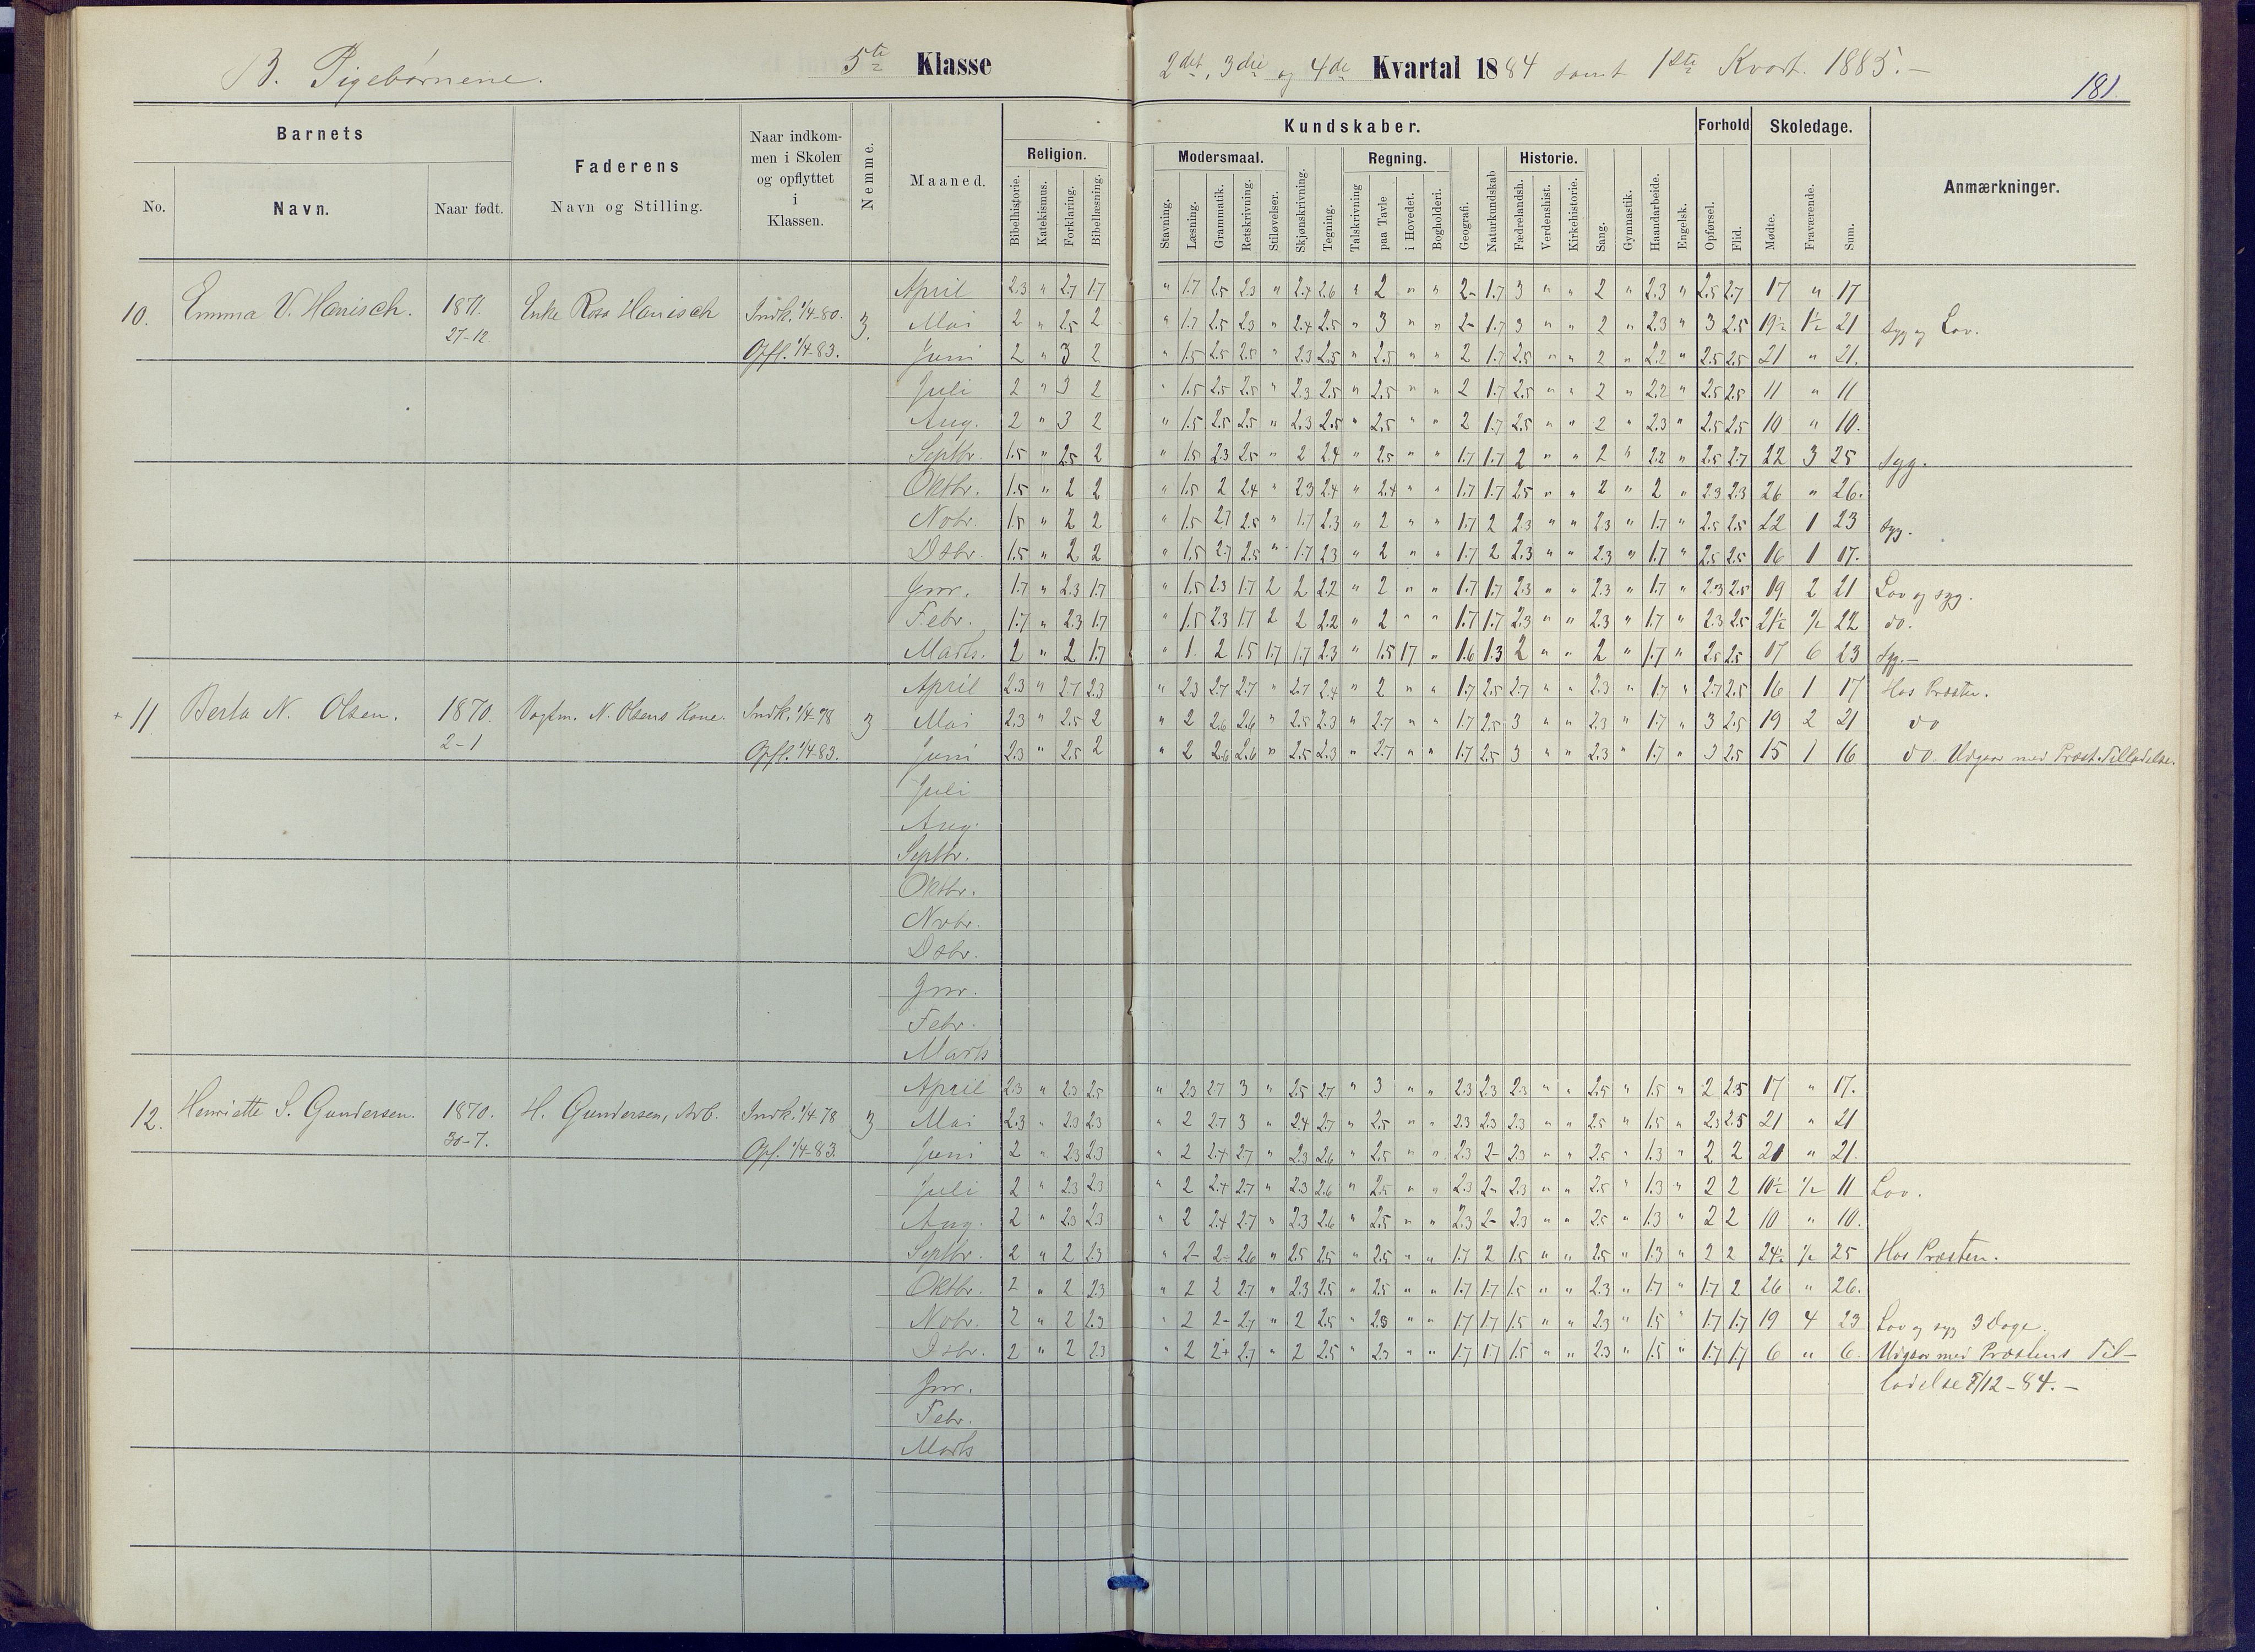 B. Pigebørnene. 5te Klasse 2det, 3die og 4de Kvartal 1884 samt 1ste Kvart. 1885.—
181
Barnets
No. Navn. Naar født.
Faderens
Navn og Stilling.
Naar indkom-
men i Skolen
og opflyttet
i
Klassen.
Nemme.
Maaned.
Kundskaber.
Religion.
Bibelhistorie. Katekismus. Forklaring. Bibellæsning.
Modersmaal.
Stavning. Læsning. Grammatik. Retskrivning. Stiløvelser. Skjønskrivning. Tegning.
Regning.
Talskrivning paa Tavle i Hovedet. Bogholderi. Geografi. Naturkundskab
Historie.
Fædrelandsh. Verdenshist. Kirkehistorie. Sang. Gymnastik. Haandarbeide. Engelsk.
Forhold
Opførsel. Flid.
Skoledage.
Mødte. Fraværende. Sum.
Anmærkninger.
10. Emma V. Hanisch. 1871. 27-12. Enke Rosa Hanisch Indk. 1/4-80. Opfl. 1/4-83. 3.
April 2.3 " 2.7 1.7 " 1.7 2.5 2.3 " 2.4 2.6 " 2 " " 2- 1.7 3 " " 2 " 2.3 " 2.5 2.7 17 " 17
Mai 2 " 2.5 2 " 1.7 2.5 2.3 " 2.4 2.5 " 3 " " 2- 1.7 3 " " 2 " 2.3 " 3 2.5 19½ 1½ 21 syg og Lov.
Juni 2 " 3 2 " 1.5 2.5 2.5 " 2.3 2.5 " 2.5 " " 2 1.7 2.5 " " 2 " 2.2 " 2.5 2.5 21 " 21.
Juli 2 " 3 2 " 1.5 2.5 2.5 " 2.3 2.5 " 2.5 " " 2 1.7 2.5 " " 2 " 2.2 " 2.5 2.5 11 " 11
Aug. 2 " 3 2 " 1.5 2.5 2.5 " 2.3 2.5 " 2.5 " " 2 1.7 2.5 " " 2 " 2.3 " 2.5 2.5 10 " 10.
Septbr. 1.5 " 2.5 2 " 1.5 2.3 2.5 " 2 2.4 " 2.5 " " 1.7 1.7 2 " " 2 " 2.2 " 2.5 2.7 22 3 25 syg.
Oktbr. 1.5 " 2 2 " 1.5 2 2.4 " 2.3 2.4 " 2.4 " " 1.7 1.7 2.5 " " 2 " 2 " 2.3 2.3 26 " 26.
Nobr. 1.5 " 2 2 " 1.5 2.7 2.5 " 1.7 2.3 " 2 " " 1.7 2 2.3 " " 2.3 " 1.7 " 2.5 2.5 22 1 23 syg.
Dsbr. 1.5 " 2 2 " 1.5 2.7 2.5 " 1.7 2.3 " 2 " " 1.7 2 2.3 " " 2.3 " 1.7 " 2.5 2.5 16 1 17.
Jnr. 1.7 " 2.3 1.7 " 1.5 2.3 1.7 2 2 2.2 " 2 " " 1.7 1.7 2.3 " " 2.3 " 1.7 " 2.3 2.5 19 2 21 Lov og syg.
Febr. 1.7 " 2.3 1.7 " 1.5 2.3 1.7 2 2 2.2 " 2 " " 1.7 1.7 2.3 " " 2.3 " 1.7 " 2.3 2.5 21½ ½ 22 do.
Marts. 2 " 2 1.7 " 1. 2 1.5 1.7 1.7 2.3 " 1.5 1.7 " 1.6 1.3 2 " " 2 " 1.7 " 2.5 2.5 17 6 23 syg.—
+ 11 Berta N. Olsen. 1870. 2-1 Vagtm. N. Olsens Kone. Indk. 1/4-78 Opfl. 1/4-83. 3
April 2.3 " 2.7 2.3 " 2.3 2.7 2.7 " 2.7 2.4 " 2 " " 1.7 2.5 2.7 " " 2.3 " 1.7 " 2.7 2.5 16 1 17 Hos Præsten.
Mai 2.3 " 2.5 2 " 2 2.6 2.6 " 2.5 2.3 " 2.7 " " 1.7 2.5 3 " " 2.3 " 1.7 " 3 2.5 19 2 21 do
Juni 2.3 " 2.5 2 " 2 2.6 2.6 " 2.5 2.3 " 2.7 " " 1.7 2.5 3 " " 2.3 " 1.7 " 3 2.5 15 1 16 do. Udgaar med Præst. Tilladelse.
Juli
Aug.
Septbr.
Oktbr.
Nvbr.
Dsbr.
Jnr.
Febr.
Marts
12. Henriette S. Gundersen. 1870. 30-7. H. Gundersen, Arb. Indk. 1/4-78 Opf. 1/4-83. 3
April 2.3 " 2.3 2.5 " 2.3 2.7 3 " 2.5 2.7 " 3 " " 2.3 2.3 2.3 " " 2.5 " 1.5 " 2 2.5 17 " 17.
Mai 2.3 " 2.3 2.3 " 2 2.7 3 " 2.4 2.7 " 2.5 " " 2.3 2.3 2.3 " " 2.5 " 1.5 " 2.3 2.5 21 " 21
Juni 2 " 2.3 2.3 " 2 2.4 2.7 " 2.3 2.6 " 2.5 " " 2.3 2- 2.3 " " 2.5 " 1.3 " 2 2 21 " 21.
Juli 2 " 2.3 2.3 " 2 2.4 2.7 " 2.3 2.6 " 2.5 " " 2.3 2- 2.3 " " 2.5 " 1.3 " 2 2 10½ ½ 11 Lov.
Aug. 2 " 2.3 2.3 " 2 2.4 2.7 " 2.3 2.6 " 2.5 " " 2.3 2- 2.3 " " 2.5 " 1.3 " 2 2 10 " 10.
Septbr. 2 " 2 2.3 " 2- 2- 2.6 " 2.5 2.5 " 2.5 " " 1.7 2 1.5 " " 2.5 " 1.3 " 2 2 24½ ½ 25 Hos Præsten.
Oktbr. 2 " 2 2.3 " 2 2 2.7 " 2.3 2.5 " 2.5 " " 1.7 1.7 1.5 " " 2.3 " 1.7 " 1.7 2 26 " 26.
Nobr. 2 " 2 2.3 " 2 2- 2.7 " 2 2.5 " 2.3 " " 1.7 1.7 1.5 " " 2.3 " 1.5 " 1.7 1.7 19 4 23 Lov og syg 3 Dage.
Dsbr. 2 " 2 2.3 " 2 2+ 2.7 " 2 2.5 " 2.3 " " 1.7 1.7 1.5 " " 2.3 " 1.5 " 1.7 1.7 6 " 6. Udgaar med Præstens Til-
Jnr. ladelse 8/12-84.—
Febr.
Marts